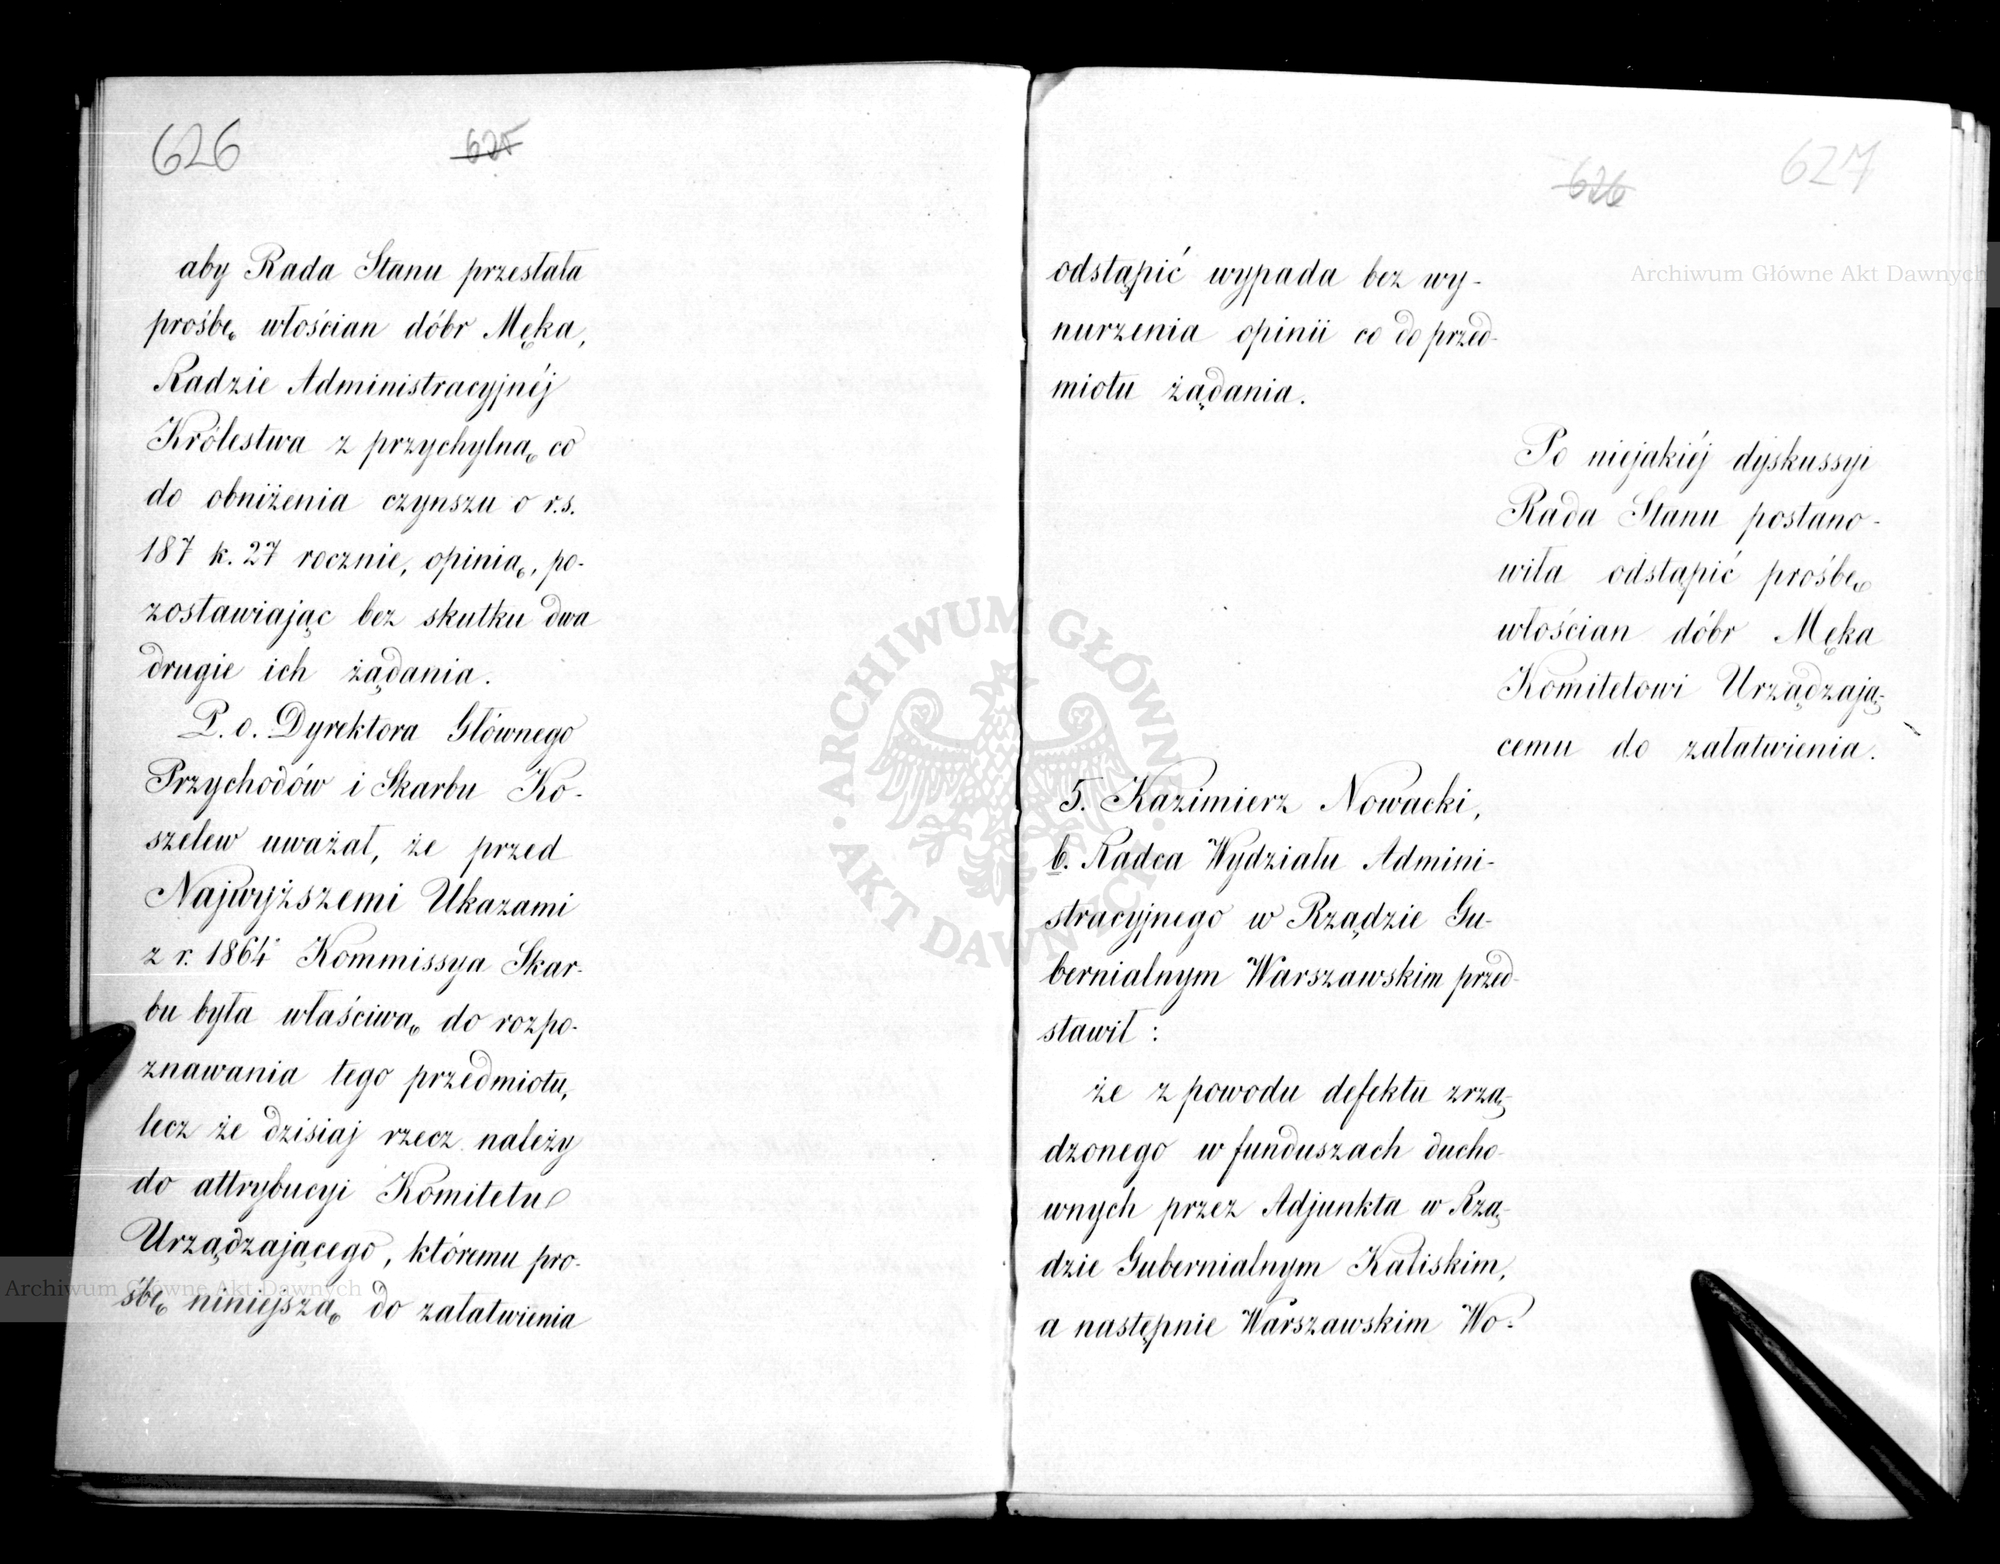 626
625
aby Rada Stanu przestała
prośbę włościan dóbr Męka,
Radzie Administracyjnéj
Królestwa z przychylną co
do obniżenia czynszu o r.s.
187 k. 27 rocznie, opinią, po-
zostawiając bez skutku dwa
drugie ich żądania.
P. o. Dyrektora Głównego
Przychodów i Skarbu Ko-
szelew uważał, że przed
Najwyższemi Ukazami
z r. 1864 Kommissya Skar-
bu była właściwą do rozpo-
znawania tego przedmiotu,
lecz że dzisiaj rzecz należy
do attrybucyi Komitetu
Urządzającego, któremu pro-
śbę niniejszą do załatwienia
626
627
odstąpić wypada bez wy-
nurzenia opinii co do przed-
miotu żądania.
Po niejakiéj dyskussyi
Rada Stanu postano-
wiła odstąpić prośbę
włościan dóbr Męka
Komitetowi Urządzają-
cemu do załatwienia.
5. Kazimierz Nowacki,
b. Radca Wydziału Admini-
stracyjnego w Rządzie Gu-
bernialnym Warszawskim przed-
stawił:
że z powodu defektu zrzą-
dzonego w funduszach ducho-
wnych przez Adjunkta w Rzą-
dzie Gubernialnym Kaliskim,
a następnie Warszawskim Wo-
Archiwum Główne Akt Dawnych
Archiwum Główne Akt Dawnych
ARCHIWUM GŁÓWNE
AKT DAWNYCH